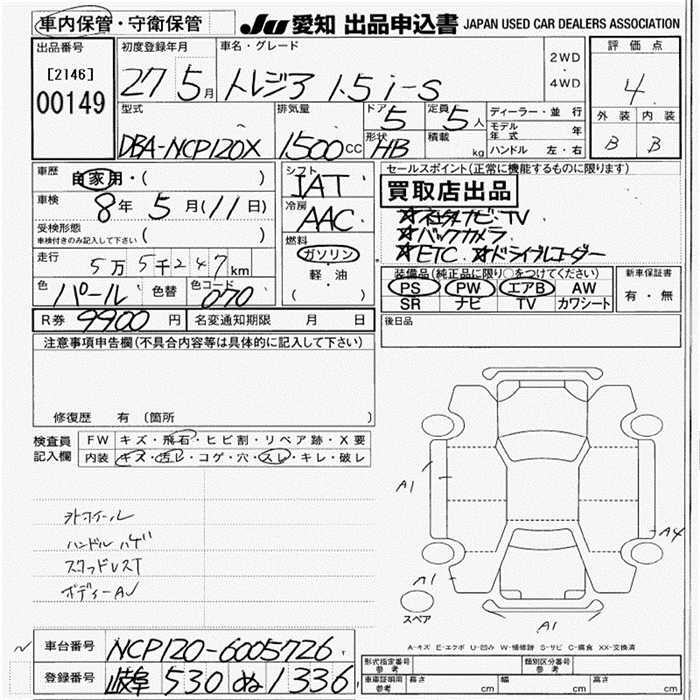 車内保管・守衛保管
JU 愛知 出品申込書 JAPAN USED CAR DEALERS ASSOCIATION
出品番号 [2146] 00149
初度登録年月 27 5月
車名・グレード トレジア 1.5 i-S
2WD・4WD
評価点 4
外装 B 内装 B
型式 DBA-NCP120X
排気量 1500CC
ドア 5 定員 5人
形状 HB 積載 kg
ディーラー・並行
モデル年式 年
ハンドル 左・右
車歴 自家用・( )
車検 8年 5月(11日)
受検形態 車検付きのみ記入して下さい ( )
走行 5万5千247km
色 パール 色替 色コード 070
シフト IAT
冷房 AAC
燃料 ガソリン 軽・油 ( )
セールスポイント(正常に機能するものに限ります)
買取店出品
☆社外ナビ・TV
☆バックカメラ
☆ETC ☆ドライブレコーダー
装備品(純正品に限り○をつけてください)
PS PW エアB AW
SR ナビ TV カワシート
新車保証書 有・無
R券 9900円 名変通知期限 月 日
後日品
注意事項申告欄(不具合内容等は具体的に記入して下さい)
修復歴 有 〔箇所 〕
検査員記入欄
FW キズ・飛石・ヒビ割・リペア跡・X要
内装 キズ・汚レ・コゲ・穴・スレ・キレ・破レ
外ホイール
ハンドルハゲ
スタッドレスT
ボディーAレ
A1
A4
A1
A1
スペア
A-キズ E-エクボ U-凹み W-補修跡 S-サビ C-腐食 XX-交換済
車台番号 NCP120-6005726
登録番号 岐阜 530 ぬ 1336
形式指定番号 参考 類別区分番号 参考
車庫証明用 参考 長さ cm 幅 cm 高さ cm